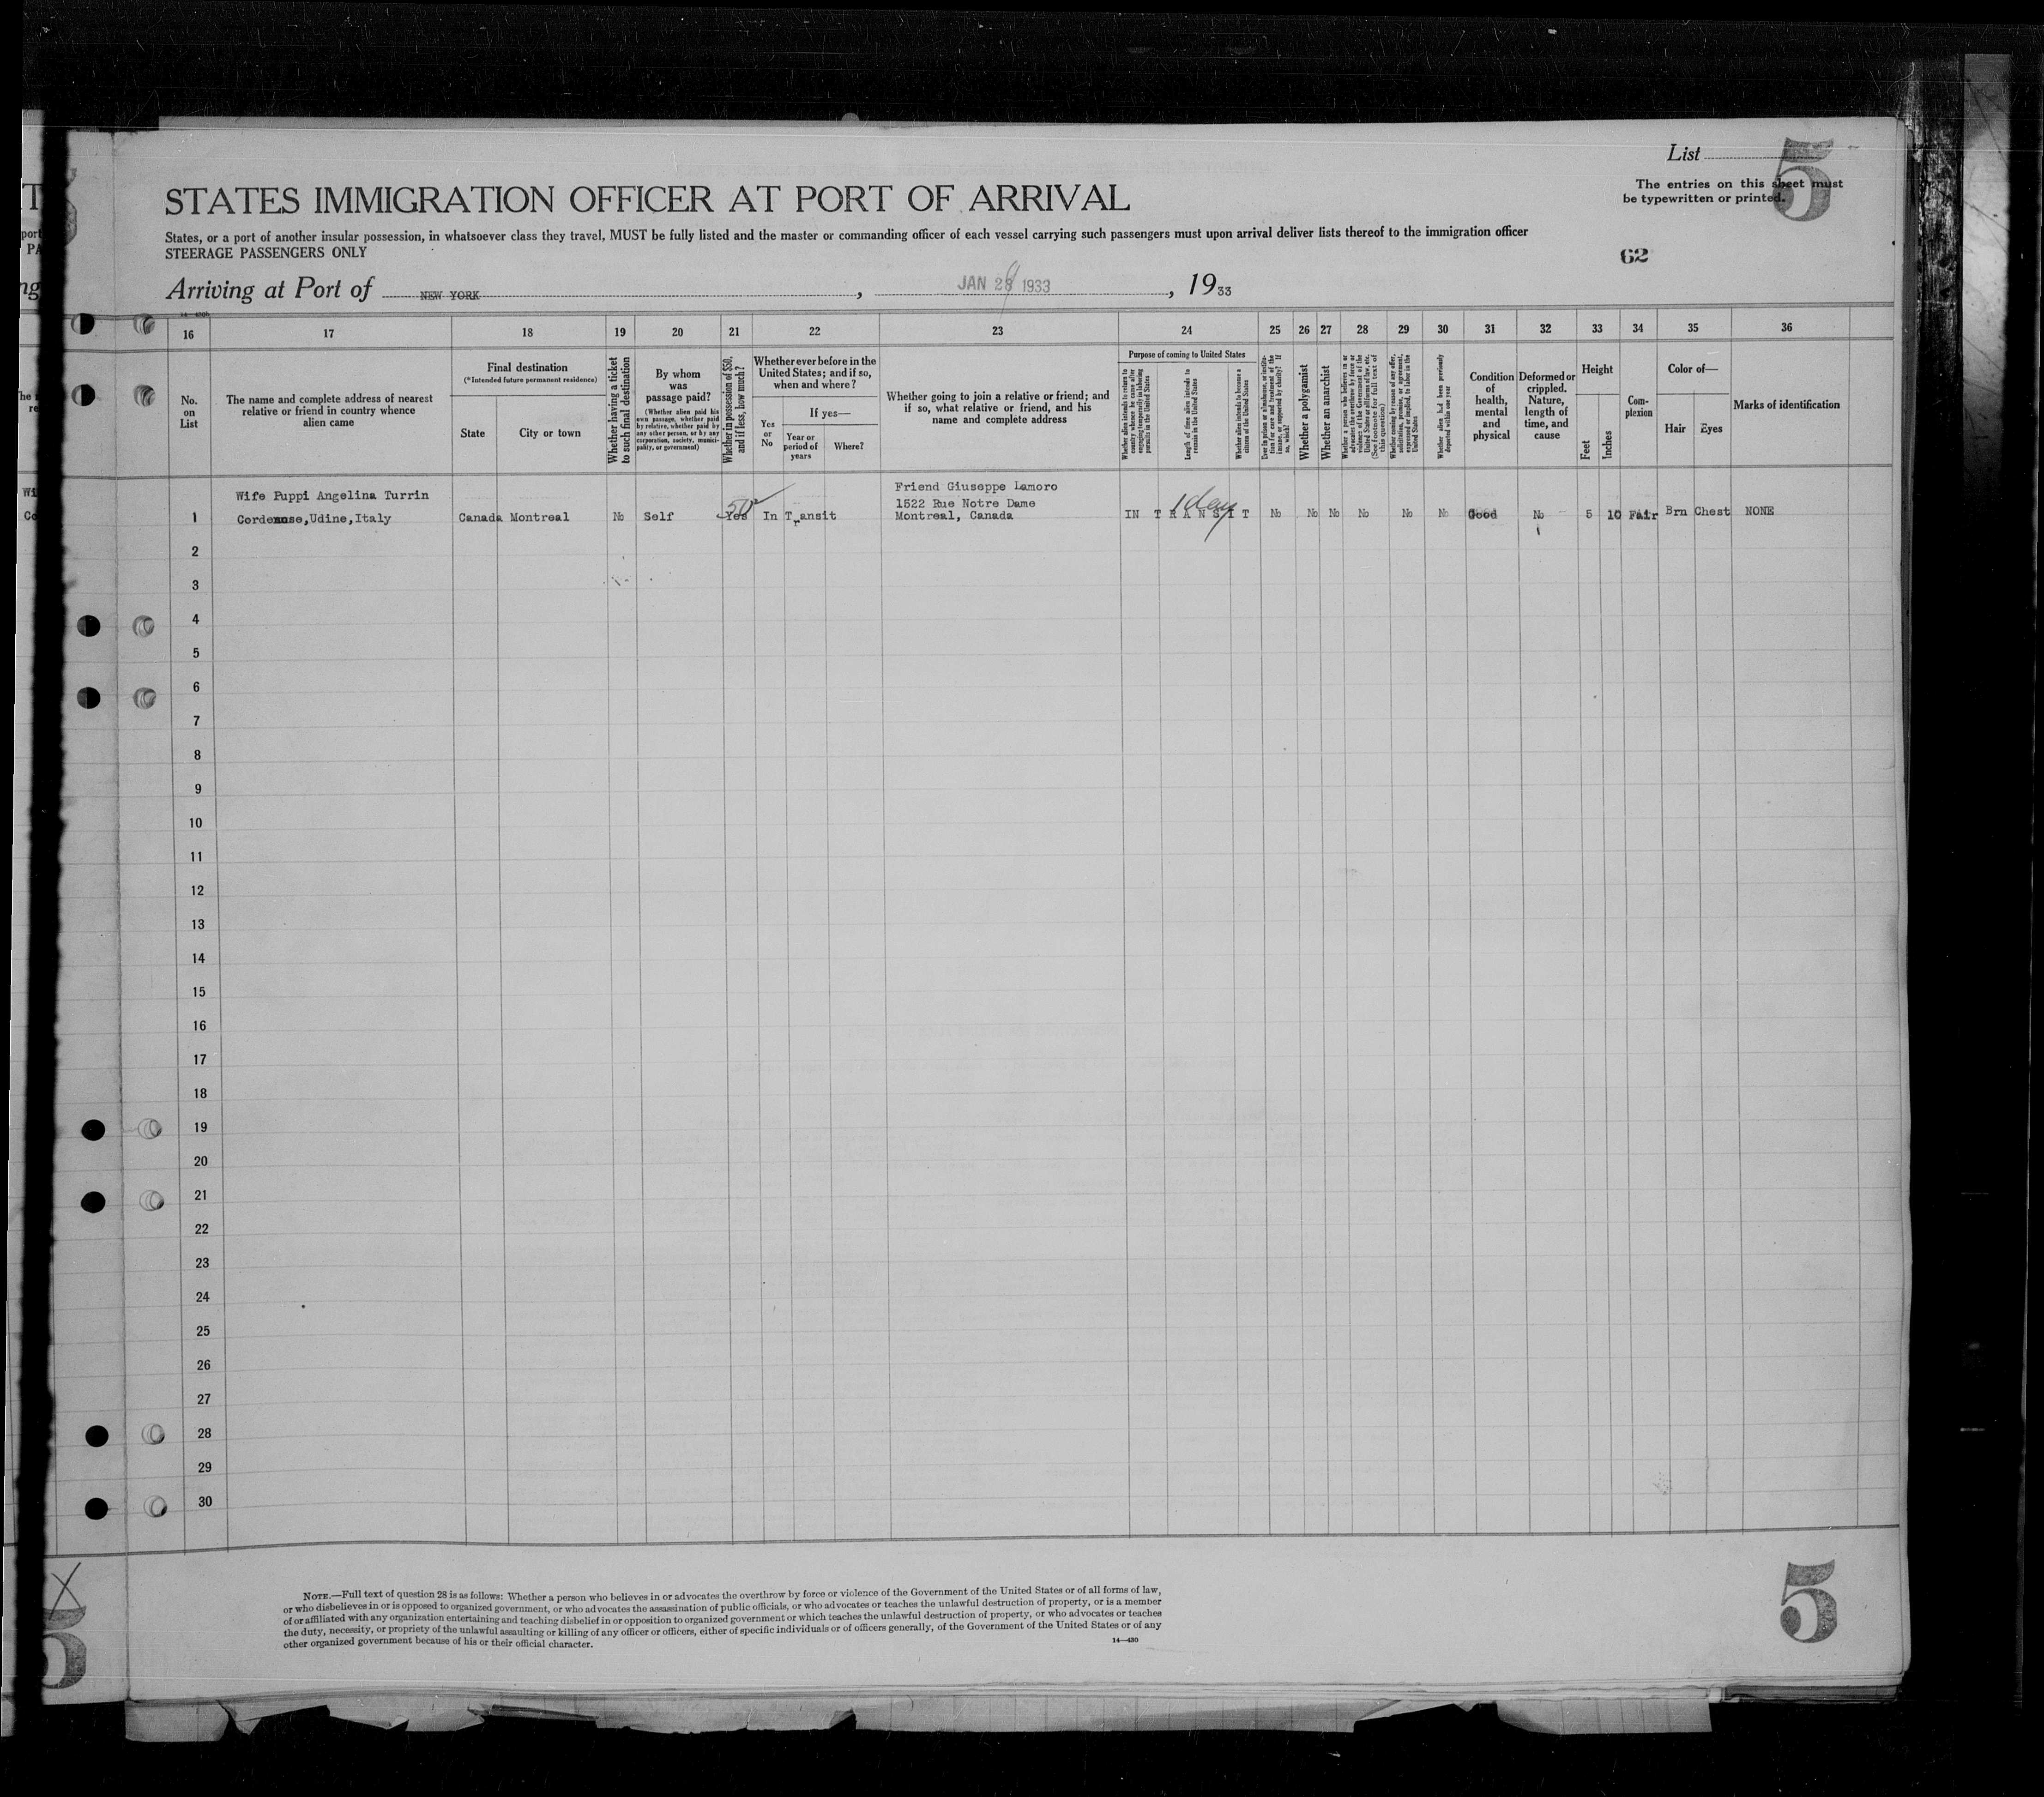 List 5
The entries on this sheet must
be typewritten or printed.
STATES IMMIGRATION OFFICER AT PORT OF ARRIVAL
States, or a port of another insular possession, in whatsoever class they travel, MUST be fully listed and the master or commanding officer of each vessel carrying such passengers must upon arrival deliver lists thereof to the immigration officer
STEERAGE PASSENGERS ONLY
62
Arriving at Port of NEW YORK, JAN 28 1933, 1933
16 17 18 19 20 21 22 23 24 25 26 27 28 29 30 31 32 33 34 35 36
No.
on
List
The name and complete address of nearest
relative or friend in country whence
alien came
Final destination
(*Intended future permanent residence)
State
City or town
Whether having a ticket
to such final destination
By whom
was
passage paid?
(Whether alien paid his
own passage, whether paid
by relative, whether paid by
any other person, or by any
corporation, society, munici-
pality, or government)
Whether in possession of $50,
and if less, how much?
Whether ever before in the
United States; and if so,
when and where?
Yes
or
No
If yes—
Year or
period of
years
Where?
Whether going to join a relative or friend; and
if so, what relative or friend, and his
name and complete address
Purpose of coming to United States
Whether alien intends to return to
country whence he came after
engaging temporarily in laboring
pursuits in the United States
Length of time alien intends to
remain in the United States
Whether alien intends to become a
citizen of the United States
Ever in prison or almshouse, or institu-
tion for care and treatment of the
insane, or supported by charity? If
so, which?
Whether a polygamist
Whether an anarchist
Whether a person who believes in or
advocates the overthrow by force or
violence of the Government of the
United States or all forms of law, etc.
(See footnote for full text of
this question)
Whether coming by reason of any offer,
solicitation, promise, or agreement,
expressed or implied, to labor in the
United States
Whether alien had been previously
deported within one year
Condition
of
health,
mental
and
physical
Deformed or
crippled.
Nature,
length of
time, and
cause
Height
Feet
Inches
Com-
plexion
Color of—
Hair
Eyes
Marks of identification
Wife Puppi Angelina Turrin
Friend Giuseppe Lamoro
1522 Rue Notre Dame
50
1 day
1 Udine,Italy Canada Montreal No Self Yes In Transit Montreal, Canada IN TRANSIT No No No No No No Good No 5 10 Fair Brn Chest NONE
2
3
4
5
6
7
8
9
10
11
12
13
14
15
16
17
18
19
20
21
22
23
24
25
26
27
28
29
30
NOTE.—Full text of question 28 is as follows: Whether a person who believes in or advocates the overthrow by force or violence of the Government of the United States or of all forms of law,
or who disbelieves in or is opposed to organized government, or who advocates the assassination of public officials, or who advocates or teaches the unlawful destruction of property, or is a member
of or affiliated with any organization entertaining and teaching disbelief in or opposition to organized government or which teaches the unlawful destruction of property, or who advocates or teaches
the duty, necessity, or propriety of the unlawful assaulting or killing of any officer or officers, either of specific individuals or of officers generally, of the Government of the United States or of any
other organized government because of his or their official character.
14—430
5